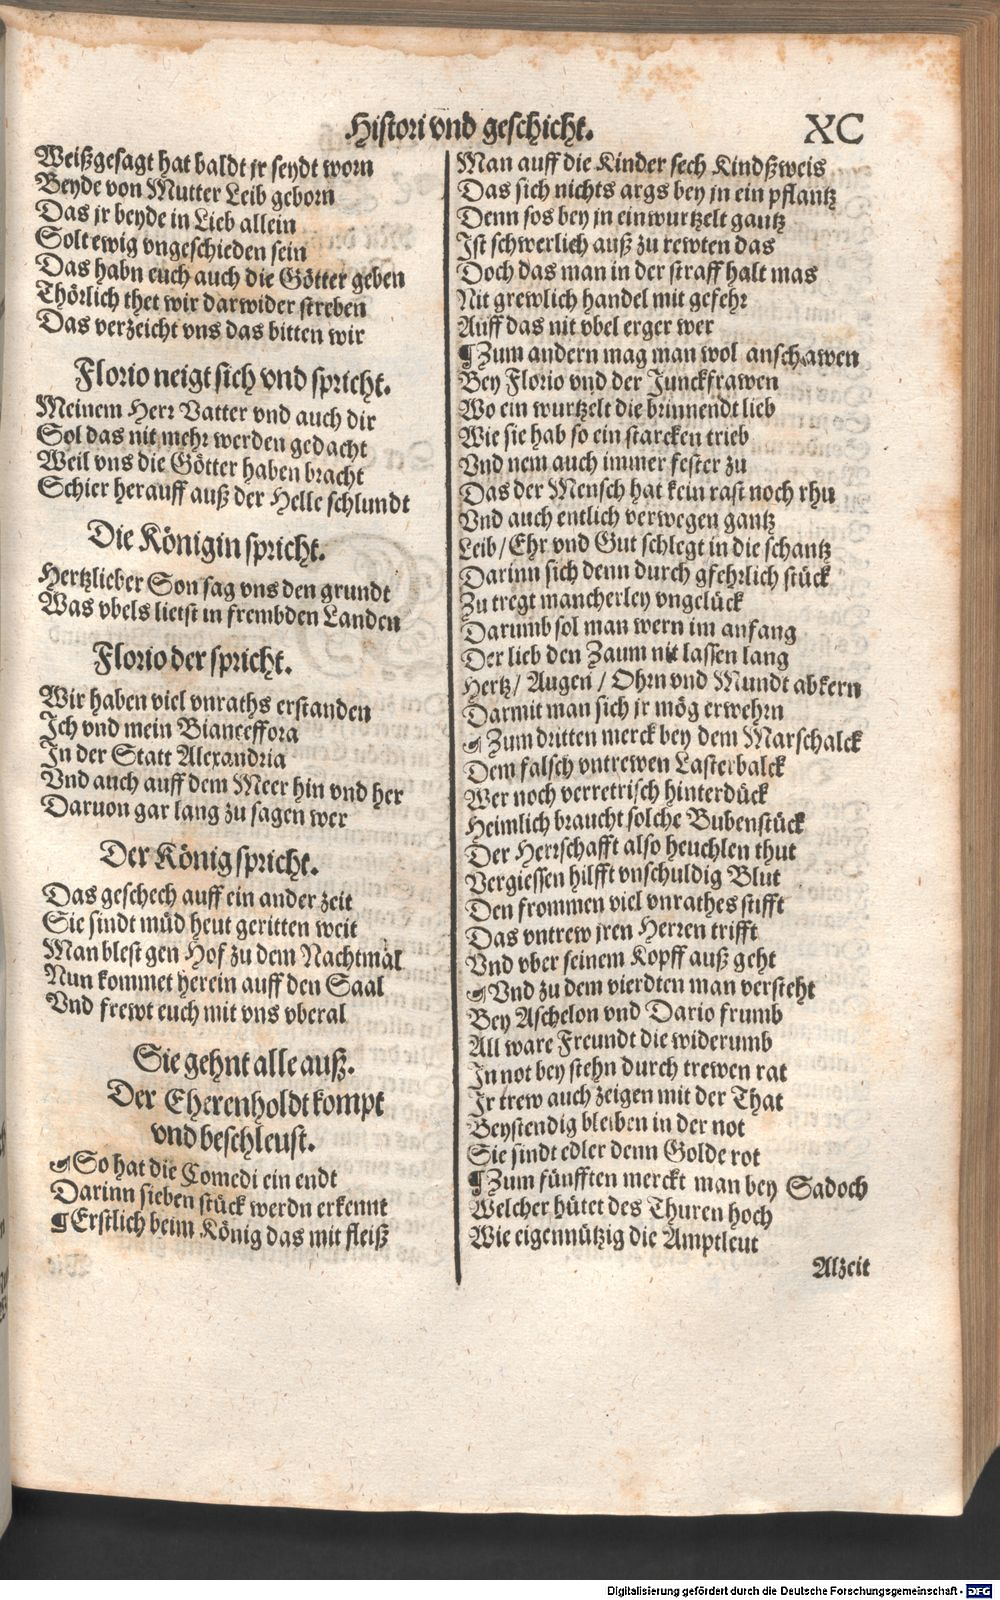 Histori vnd geschicht. XC
Weißgesagt hat baldt jr seydt worn
Beyde von Mutter Leib geborn
Das jr beyde in Lieb allein
Solt ewig vngeschieden sein
Das habn euch auch die Götter geben
Thörlich thet wir darwider streben
Das verzeicht vns das bitten wir
Florio neigt sich vnd spricht.
Meinem Herr Vatter vnd auch dir
Sol das nit mehr werden gedacht
Weil vns die Götter haben bracht
Schier herauff auß der Helle schlundt
Die Königin spricht.
Hertzlieber Son sag vns den grundt
Was vbels lietst in frembden Landen
Florio der spricht.
Wir haben viel vnraths erstanden
Ich vnd mein Bianceffora
In der Statt Alexandria
Vnd auch auff dem Meer hin vnd her
Daruon gar lang zu sagen wer
Der König spricht.
Das geschech auff ein ander zeit
Sie sindt müd heut geritten weit
Man blest gen Hof zu dem Nachtmal
Nun kommet herein auff den Saal
Vnd frewt euch mit vns vberal
Sie gehnt alle auß.
Der Eherenholdt kompt
vnd beschleust.
☙So hat die Comedi ein endt
Darinn sieben stück werdn erkennt
¶Erstlich beim König das mit fleiß
Man auff die Kinder sech Kindßweis
Das sich nichts args bey jn ein pflantz
Denn sos bey jn einwurtzelt gantz
Ist schwerlich auß zu rewten das
Doch das man in der straff halt mas
Nit grewlich handel mit gefehr
Auff das nit vbel erger wer
¶Zum andern mag man wol anschawen
Bey Florio vnd der Junckfrawen
Wo ein wurtzelt die brinnendt lieb
Wie sie hab so ein starcken trieb
Vnd nem auch immer fester zu
Das der Mensch hat kein rast noch rhu
Vnd auch entlich verwegen gantz
Leib/ Ehr vnd Gut schlegt in die schantz
Darinn sich denn durch gfehrlich stück
Zu tregt mancherley vngelück
Darumb sol man wern im anfang
Der lieb den Zaum nit lassen lang
Hertz/ Augen/ Ohrn vnd Mundt abkern
Darmit man sich jr mög erwehrn
☙Zum dritten merck bey dem Marschalck
Dem falsch vntrewen Lasterbalck
Wer noch verretrisch hinterdück
Heimlich braucht solche Bubenstück
Der Herrschafft also heuchlen thut
Vergiessen hilfft vnschuldig Blut
Den frommen viel vnrathes stifft
Das vntrew jren Herren trifft
Vnd vber seinem Kopff auß geht
☙Vnd zu dem vierdten man versteht
Bey Aschelon vnd Dario frumb
All ware Freundt die widerumb
In not bey stehn durch trewen rat
Ir trew auch zeigen mit der That
Beystendig bleiben in der not
Sie sindt edler denn Golde rot
¶Zum fünfften merckt man bey Sadoch
Welcher hütet des Thuren hoch
Wie eigennützig die Amptleut
Alzeit
Digitalisierung gefördert durch die Deutsche Forschungsgemeinschaft - DFG